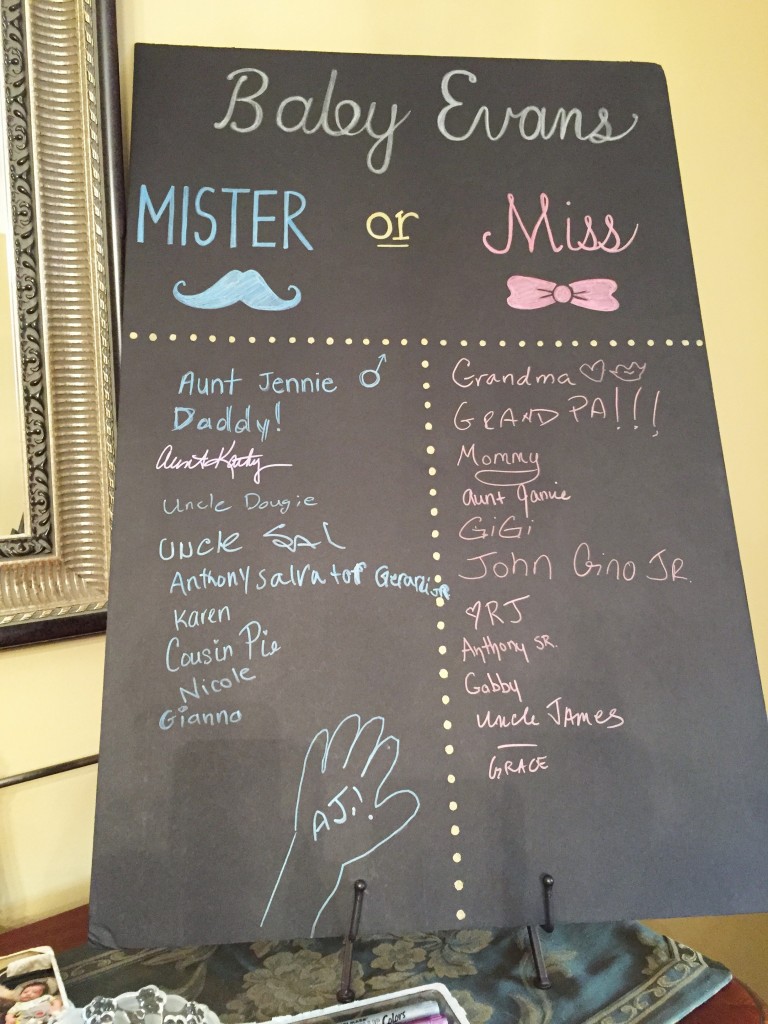 Baby Evans
MISTER or Miss
Aunt Jennie
Daddy!
Aunt Kathy
Uncle Dougie
Uncle SAL
Anthony Salvator
Karen
Cousin Pie
Nicole
Gianna
AJ!
Grandma
GRAND PA!!!
Mommy
Aunt Jamie
GiGi
John Gino JR.
RJ
Anthony SR.
Gabby
Uncle JAMES
GRACE
Colors